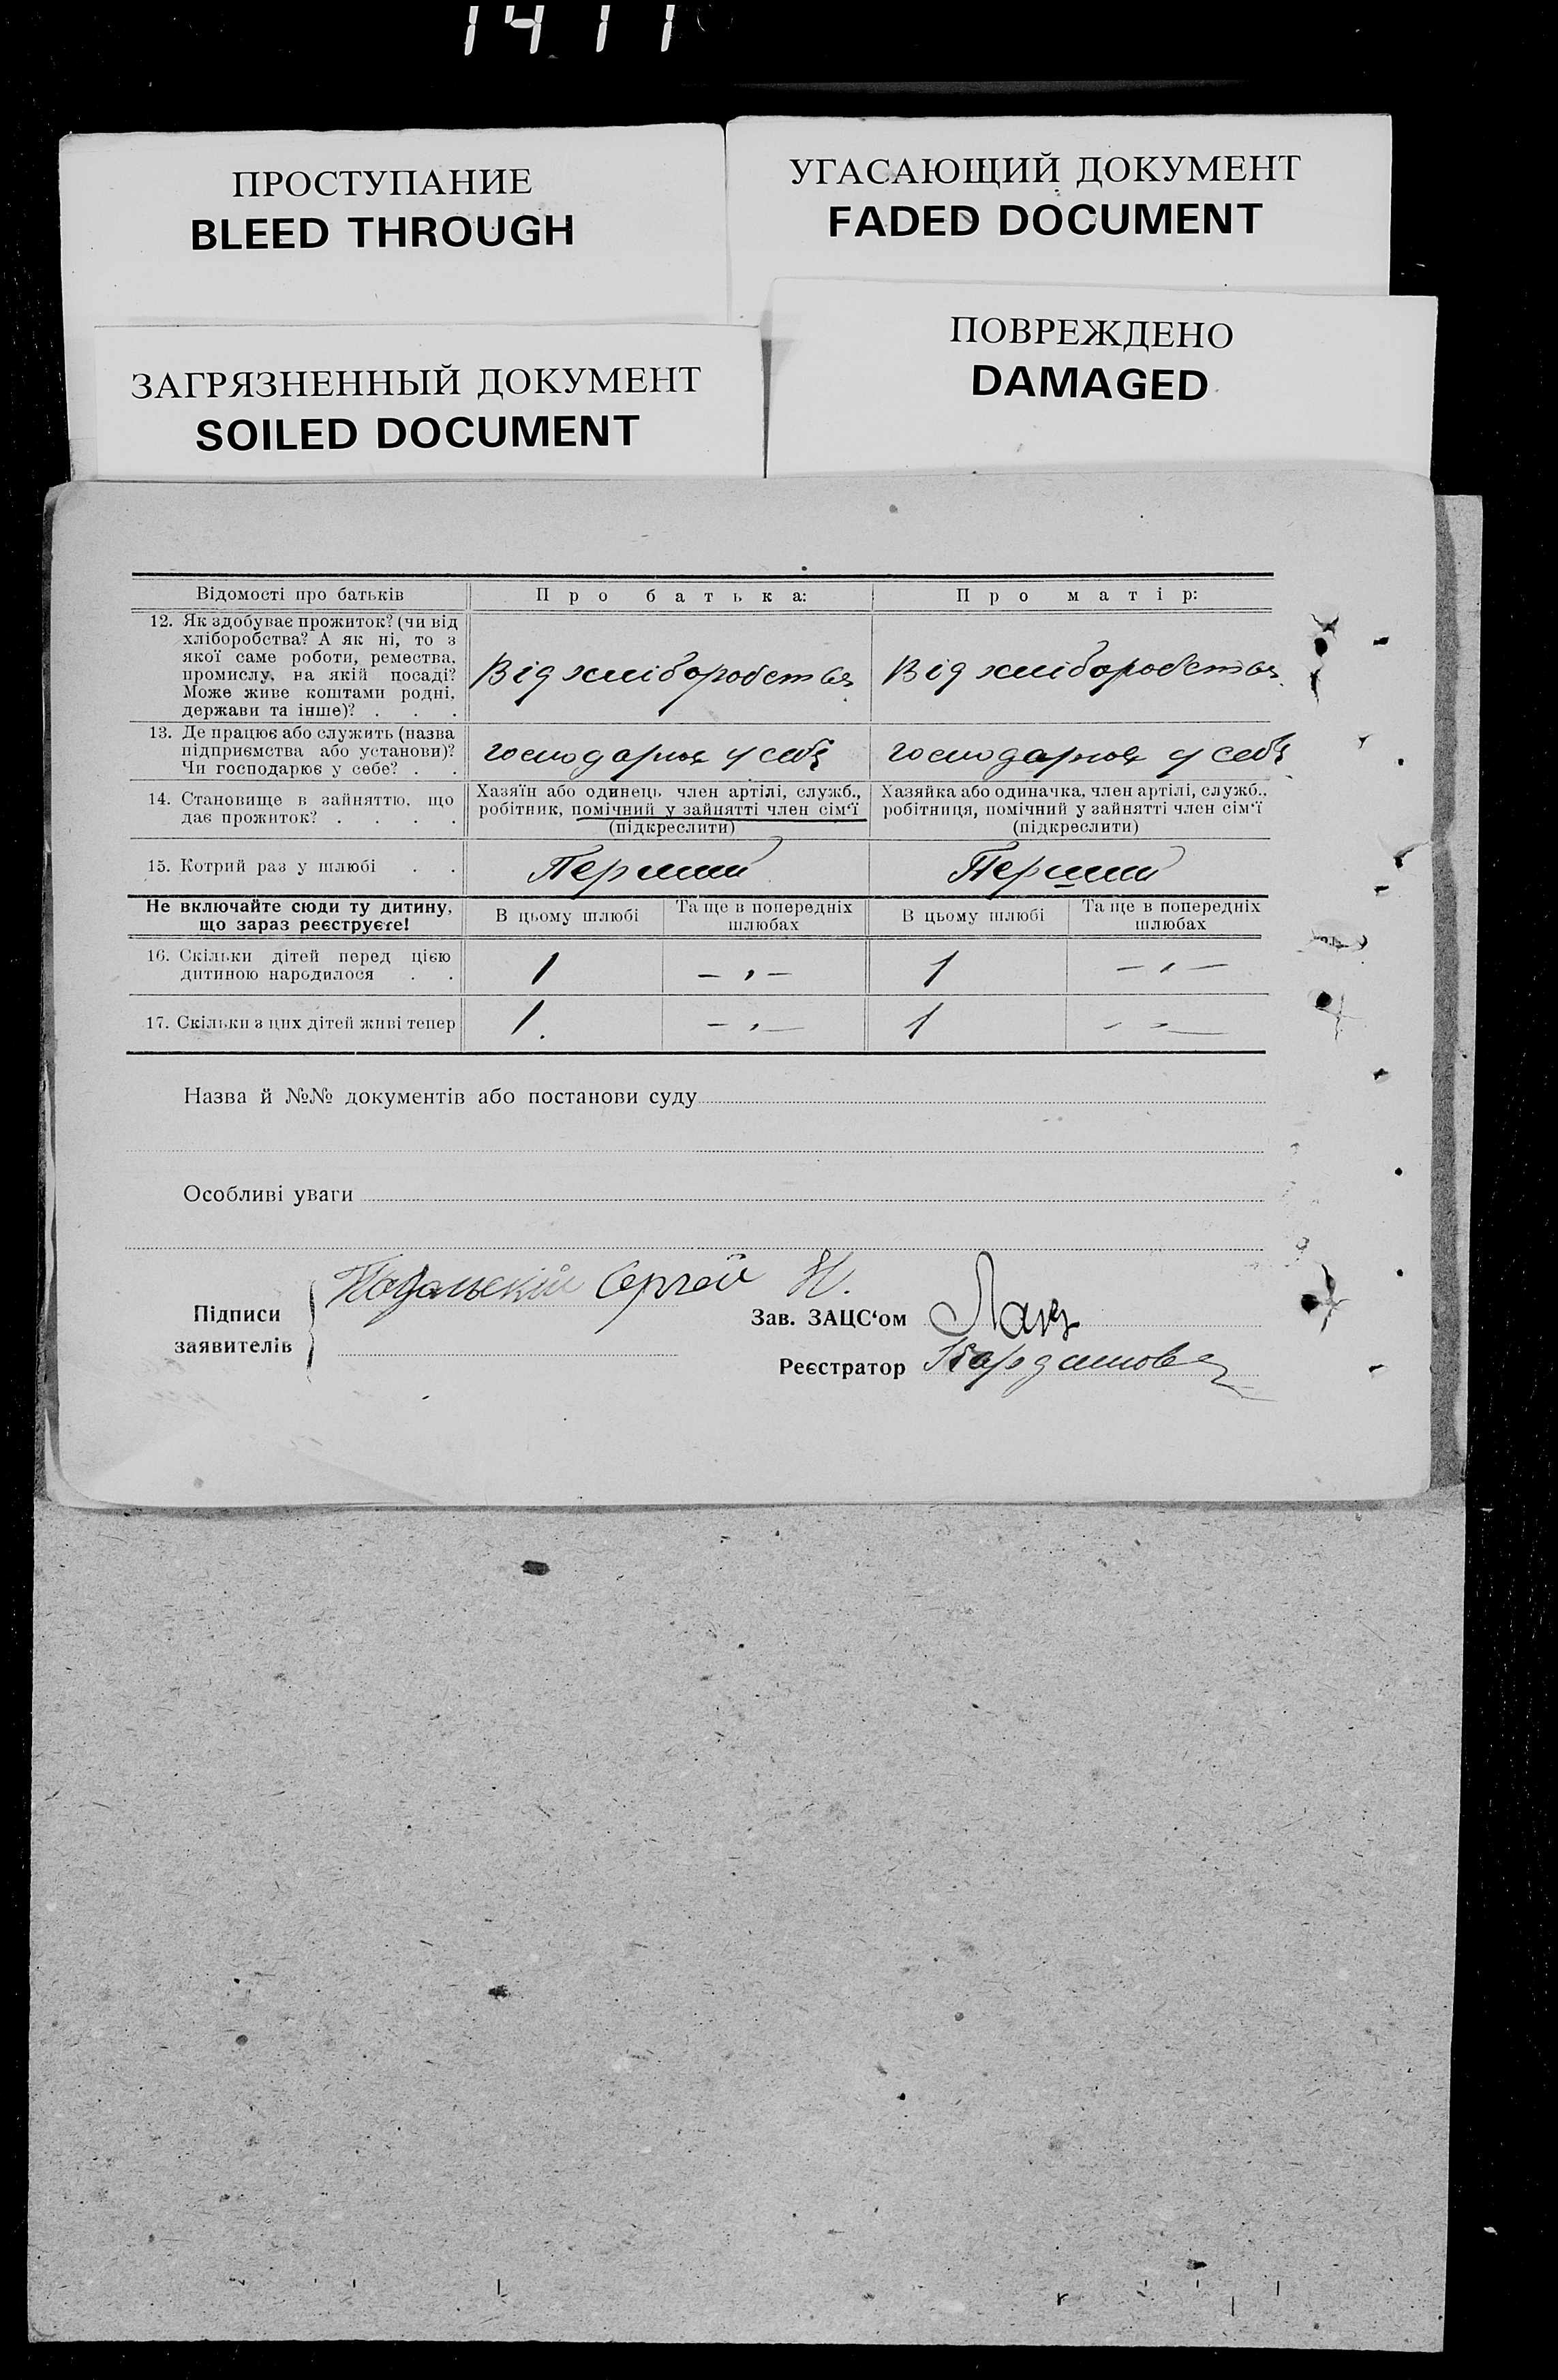 1411
ПРОСТУПАНИЕ
BLEED THROUGH
УГАСАЮЩИЙ ДОКУМЕНТ
FADED DOCUMENT
ЗАГРЯЗНЕННЫЙ ДОКУМЕНТ
SOILED DOCUMENT
ПОВРЕЖДЕНО
DAMAGED
Відомості про батьків
Про батька:
Про матір:
12. Як здобуває прожиток? (чи від
хліборобства? А як ні, то з
якої саме роботи, ремества,
промислу, на якій посаді?
Може живе коштами родні,
держави та інше)? . . .
Від хліборобства
Від хліборобства
13. Де працює або служить (назва
підприємства або установи)?
Чи господарює у себе? . .
господарює у себе
господарює у себе
14. Становище в зайняттю, що
дає прожиток? . . . .
Хазяїн або одинець, член артілі, служб.,
робітник, помічний у зайнятті член сім'ї
(підкреслити)
Хазяйка або одиначка, член артілі, служб.,
робітниця, помічний у зайнятті член сім'ї
(підкреслити)
15. Котрий раз у шлюбі . .
Перший
Перший
Не включайте сюди ту дитину,
що зараз реєструєте!
В цьому шлюбі
Та ще в попередніх
шлюбах
В цьому шлюбі
Та ще в попередніх
шлюбах
16. Скільки дітей перед цією
дитиною народилося . .
1
— „ —
1
— „ —
17. Скільки з цих дітей живі тепер
1.
— „ —
1
— „ —
Назва й №№ документів або постанови суду
Особливі уваги
Підписи
заявителів
Сергей Н.
Зав. ЗАЦС'ом
Реєстратор